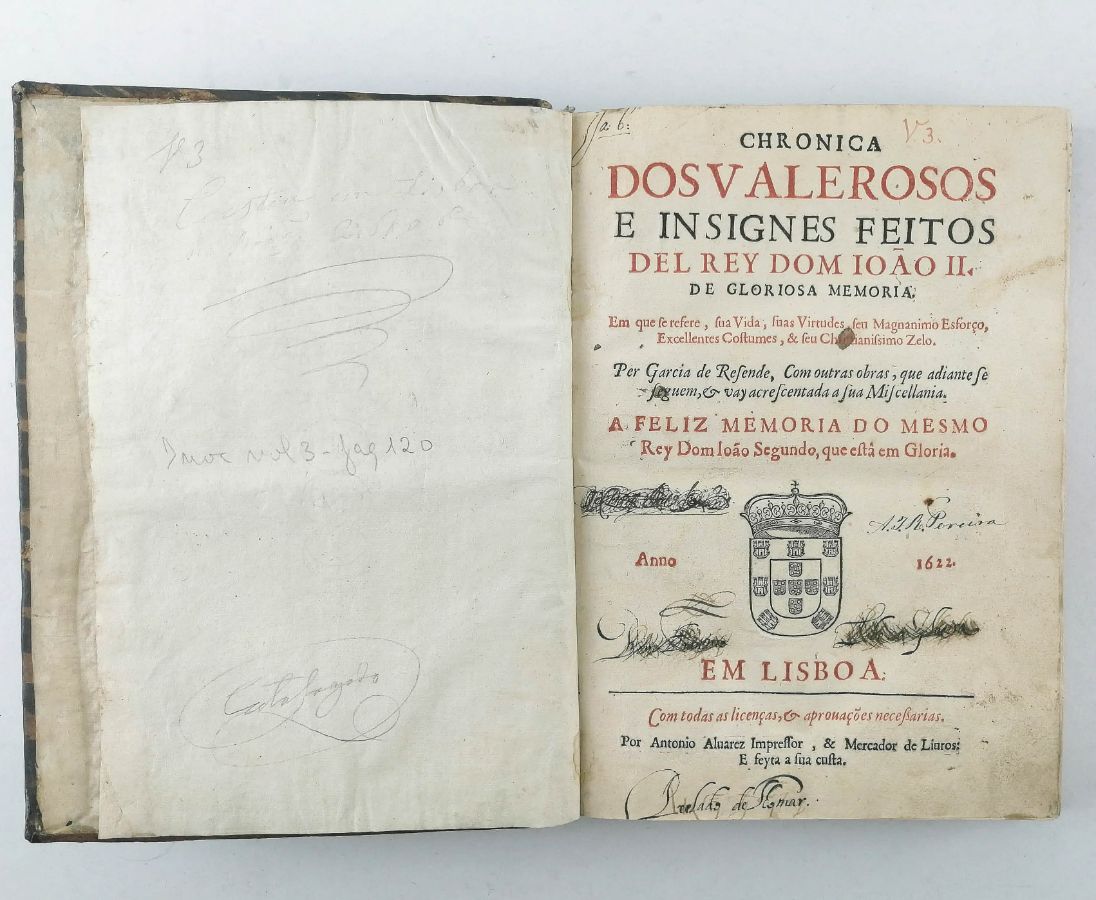 Vº 3
Inoc vol 3 - pag 120
Catalogado
V3.
CHRONICA
DOS VALEROSOS
E INSIGNES FEITOS
DEL REY DOM IOÃO II.
DE GLORIOSA MEMORIA.
Em que ſe refere, ſua Vida, ſuas Virtudes, ſeu Magnanimo Esforço,
Excellentes Coſtumes, & ſeu Chriſtianiſsimo Zelo.
Per Garcia de Reſende, Com outras obras, que adiante ſe
ſeguem, & vay acreſcentada a ſua Miſcellania.
A FELIZ MEMORIA DO MESMO
Rey Dom Ioão Segundo, que eſtâ em Gloria.
A. J. R. Pereira
Anno 1622.
EM LISBOA.
Com todas as licenças, & aprouações neceſſarias.
Por Antonio Aluarez Impreſſor, & Mercador de Liuros:
E feyta a ſua cuſta.
de Thomar.